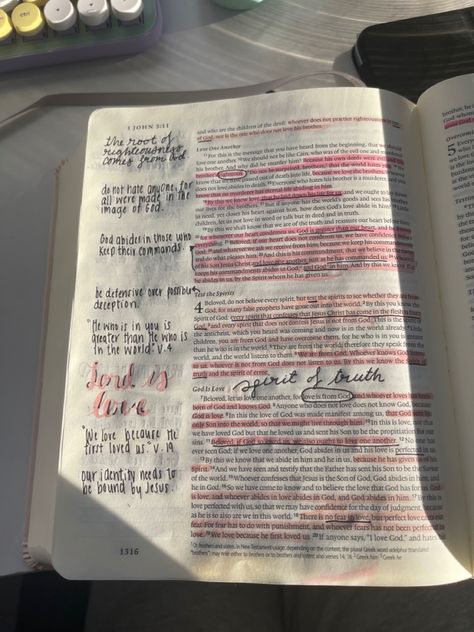 1 JOHN 3:11
the root of
righteousness
comes from God
do not hate anyone, for
all were made in the
image of God.
God abides in those who
keep their commands.
be defensive over possible
deception.
"He who is in you is
greater than He who is
in the world" v.4
Lord is
love
"We love because He
first loved us." v.19
our identity needs to
be bound by Jesus.
1316
and who are the children of the devil: whoever does not practice righteousness is
of God, nor is the one who does not love his brother.
Love One Another
11 For this is the message that you have heard from the beginning, that we should
love one another. 12 We should not be like Cain, who was of the evil one and
his brother. Because his own deeds were evil
13 Do not be surprised, brothers, that the world hates you.
know that we have passed out of death into life, because we love the brothers.
does not love abides in death. 15 Everyone who hates his brother is a murderer, and you
know that no murderer has eternal life abiding in him.
16 By this we know love, that he laid down his life for us, and we ought to lay down
our lives for the brothers. 17 But if anyone has the world's goods and sees his brother
in need, yet closes his heart against him, how does God's love abide in him? 18 Little
children, let us not love in word or talk but in deed and in truth.
19 By this we shall know that we are of the truth and reassure our heart before him;
20 for whenever our heart condemns us, God is greater than our heart, and he knows
everything. 21 Beloved, if our heart does not condemn us, we have confidence before
God; 22 and whatever we ask we receive from him, because we keep his commandments
and do what pleases him. 23 And this is his commandment, that we believe in the name
of his Son Jesus Christ and love one another, just as he has commanded us. 24 Whoever
keeps his commandments abides in God, and God in him. And by this we know that
he abides in us, by the Spirit whom he has given us.
Test the Spirits
4 Beloved, do not believe every spirit, but test the spirits to see whether they are from
God, for many false prophets have gone out into the world. 2 By this you know the
Spirit of God: every spirit that confesses that Jesus Christ has come in the flesh is from
God, 3 and every spirit that does not confess Jesus is not from God. This is the spirit of
the antichrist, which you heard was coming and now is in the world already. 4 Little
children, you are from God and have overcome them, for he who is in you is greater
than he who is in the world. 5 They are from the world; therefore they speak from the
world, and the world listens to them. 6 We are from God. Whoever knows God listens
to us; whoever is not from God does not listen to us. By this we know the Spirit of
truth and the spirit of error.
God Is Love
spirit of truth
7 Beloved, let us love one another, for love is from God, and whoever loves has been
born of God and knows God. 8 Anyone who does not love does not know God, because
God is love. 9 In this the love of God was made manifest among us, that God sent his
only Son into the world, so that we might live through him. 10 In this is love, not that
we have loved God but that he loved us and sent his Son to be the propitiation for our
sins. 11 Beloved, if God so loved us, we also ought to love one another. 12 No one has
ever seen God; if we love one another, God abides in us and his love is perfected in us.
13 By this we know that we abide in him and he in us, because he has given us of his
Spirit. 14 And we have seen and testify that the Father has sent his Son to be the Savior
of the world. 15 Whoever confesses that Jesus is the Son of God, God abides in him, and
he in God. 16 So we have come to know and to believe the love that God has for us. God
is love, and whoever abides in love abides in God, and God abides in him. 17 By this is
love perfected with us, so that we may have confidence for the day of judgment, because
as he is so also are we in this world. 18 There is no fear in love, but perfect love casts out
fear. For fear has to do with punishment, and whoever fears has not been perfected in
love. 19 We love because he first loved us. 20 If anyone says, "I love God," and hates his